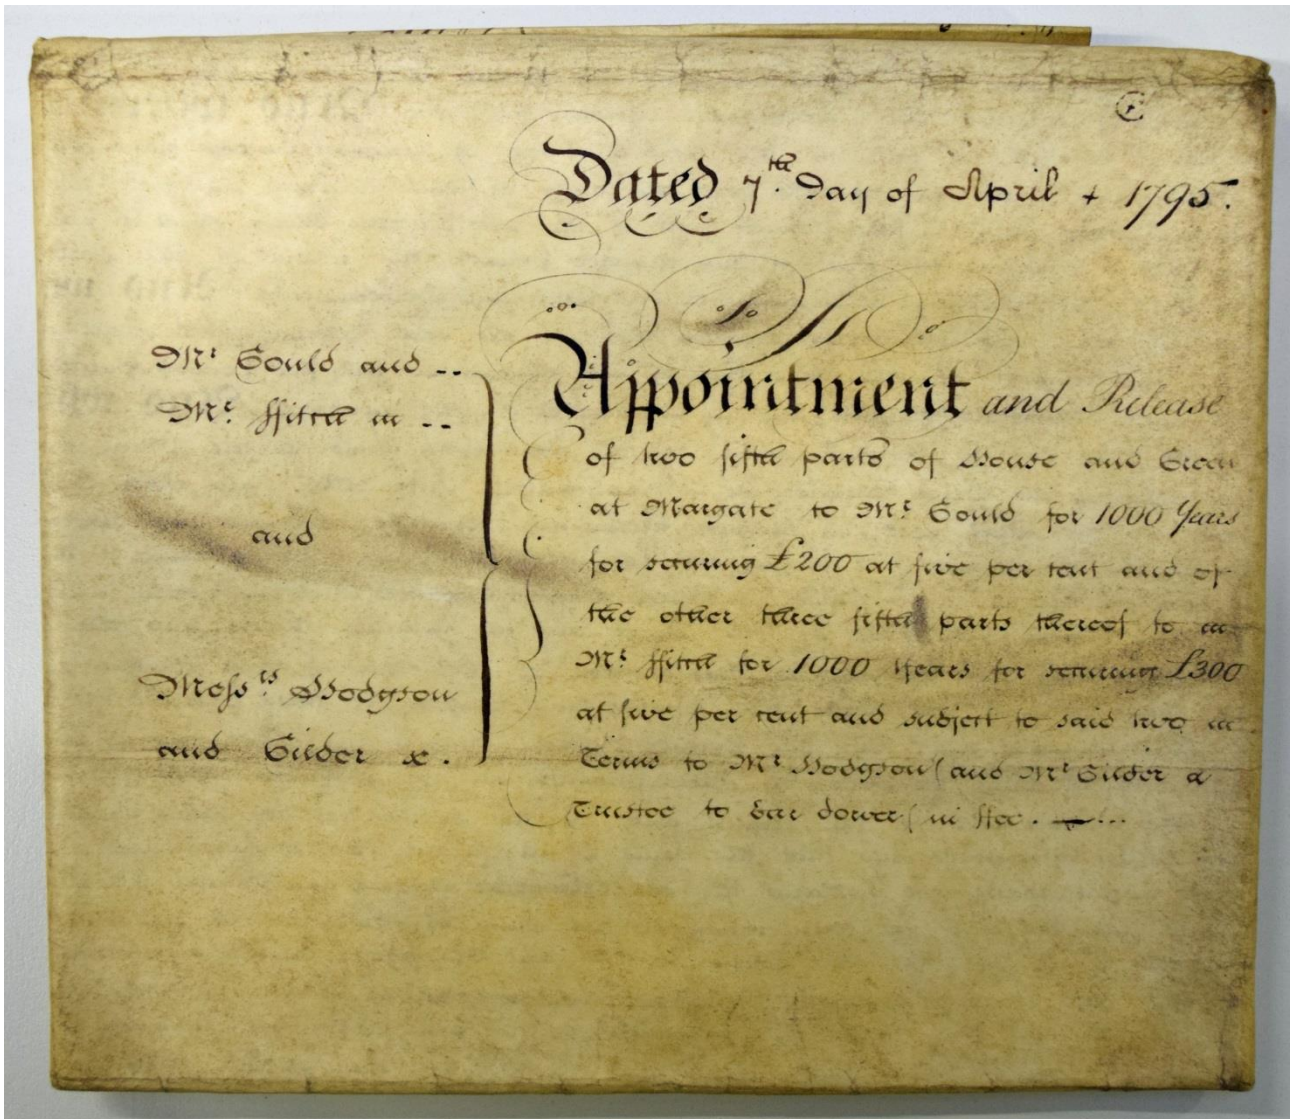 Dated 7th. Day of April + 1795.
Mr Gould and --
Mr. ffitch in --
and
Messrs. Hodgson
and Gilder &c.
Appointment and Release
of two fifth parts of House and Green
at Margate to Mr. Gould for 1000 Years
for securing £200 at five per Cent and of
the other three fifth parts thereof to
Mr. ffitch for 1000 Years for securing £300
at five per Cent and subject to said two
Terms to Mr Hodgson (and Mr Gilder a
Trustee to bar dower) in ffee.